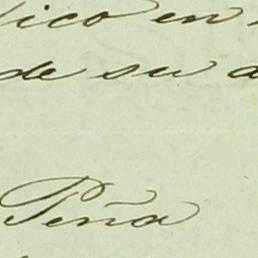 tico en
de su a
Peña